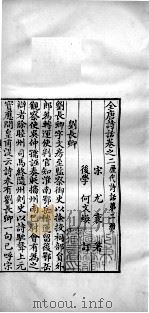 全唐詩話卷之二 歷代詩話
宋 尤袤 著
後學 何文煥 訂
劉長卿
劉長卿字文房至監察御史以檢校祠部員外
郎為轉運使判官知淮南鄂岳轉運留後鄂岳
觀察使吳仲孺誣奏貶潘州南巴尉會有為之
辯者除睦州司馬終隨州刺史以詩馳聲上元
寶應間皇甫湜云詩未有劉長卿一句已呼宋